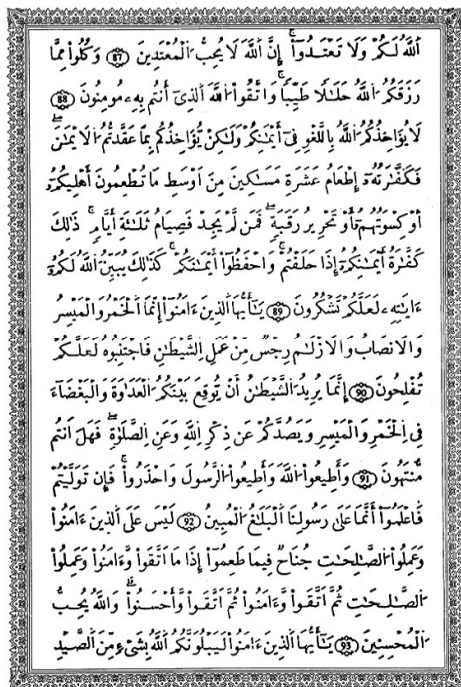 اَ۬للَّهُ لَكُمْ وَلَا تَعْتَدُوٓاْۖ إِنَّ اَ۬للَّهَ لَا يُحِبُّ اُ۬لْمُعْتَدِينَ 87 وَكُلُواْ مِمَّا
رَزَقَكُمُ اُ۬للَّهُ حَلَٰلٗا طَيِّبٗاۖ وَاتَّقُواْ اُ۬للَّهَ اَ۬لَّذِيٓ أَنتُم بِهِۦ مُومِنُونَ 88
لَا يُؤَاخِذُكُمُ اُ۬للَّهُ بِاللَّغْوِ فِيٓ أَيْمَٰنِكُمْ وَلَٰكِنْ يُّؤَاخِذُكُم بِمَا عَقَّدتُّمُ اُ۬لَايْمَٰنَۖ
فَكَفَّٰرَتُهُۥٓ إِطْعَامُ عَشَرَةِ مَسَٰكِينَ مِنَ اَوْسَطِ مَا تُطْعِمُونَ أَهْلِيكُمُۥٓ
أَوْ كِسْوَتُهُمُۥٓ أَوْ تَحْرِيرُ رَقَبَةٖۖ فَمَن لَّمْ يَجِدْ فَصِيَامُ ثَلَٰثَةِ أَيَّامٖۖ ذَٰلِكَ
كَفَّٰرَةُ أَيْمَٰنِكُمُۥٓ إِذَا حَلَفْتُمْۖ وَاحْفَظُوٓاْ أَيْمَٰنَكُمْۖ كَذَٰلِكَ يُبَيِّنُ اُ۬للَّهُ لَكُمُۥٓ
ءَايَٰتِهِۦ لَعَلَّكُمْ تَشْكُرُونَ 89 يَٰٓأَيُّهَا اَ۬لَّذِينَ ءَامَنُوٓاْ إِنَّمَا اَ۬لْخَمْرُ وَالْمَيْسِرُ
وَالَانصَابُ وَالَازْلَٰمُ رِجْسٞ مِّنْ عَمَلِ اِ۬لشَّيْطَٰنِ فَاجْتَنِبُوهُ لَعَلَّكُمْ
تُفْلِحُونَ 90 إِنَّمَا يُرِيدُ اُ۬لشَّيْطَٰنُ أَنْ يُّوقِعَ بَيْنَكُمُ اُ۬لْعَدَٰوَةَ وَالْبَغْضَآءَ
فِي اِ۬لْخَمْرِ وَالْمَيْسِرِ وَيَصُدَّكُمْ عَن ذِكْرِ اِ۬للَّهِ وَعَنِ اِ۬لصَّلَوٰةِۖ فَهَلَ اَنتُم
مُّنتَهُونَ 91 وَأَطِيعُواْ اُ۬للَّهَ وَأَطِيعُواْ اُ۬لرَّسُولَ وَاحْذَرُواْۖ فَإِن تَوَلَّيْتُمْ
فَاعْلَمُوٓاْ أَنَّمَا عَلَىٰ رَسُولِنَا اَ۬لْبَلَٰغُ اُ۬لْمُبِينُ 92 لَيْسَ عَلَى اَ۬لَّذِينَ ءَامَنُواْ
وَعَمِلُواْ اُ۬لصَّٰلِحَٰتِ جُنَاحٞ فِيمَا طَعِمُوٓاْ إِذَا مَا اَ۪تَّقَواْ وَّءَامَنُواْ وَعَمِلُواْ
اُ۬لصَّٰلِحَٰتِ ثُمَّ اَ۪تَّقَواْ وَّءَامَنُواْ ثُمَّ اَ۪تَّقَواْ وَّأَحْسَنُواْۖ وَاللَّهُ يُحِبُّ
اُ۬لْمُحْسِنِينَ 93 يَٰٓأَيُّهَا اَ۬لَّذِينَ ءَامَنُواْ لَيَبْلُوَنَّكُمُ اُ۬للَّهُ بِشَيْءٖ مِّنَ اَ۬لصَّيْدِ